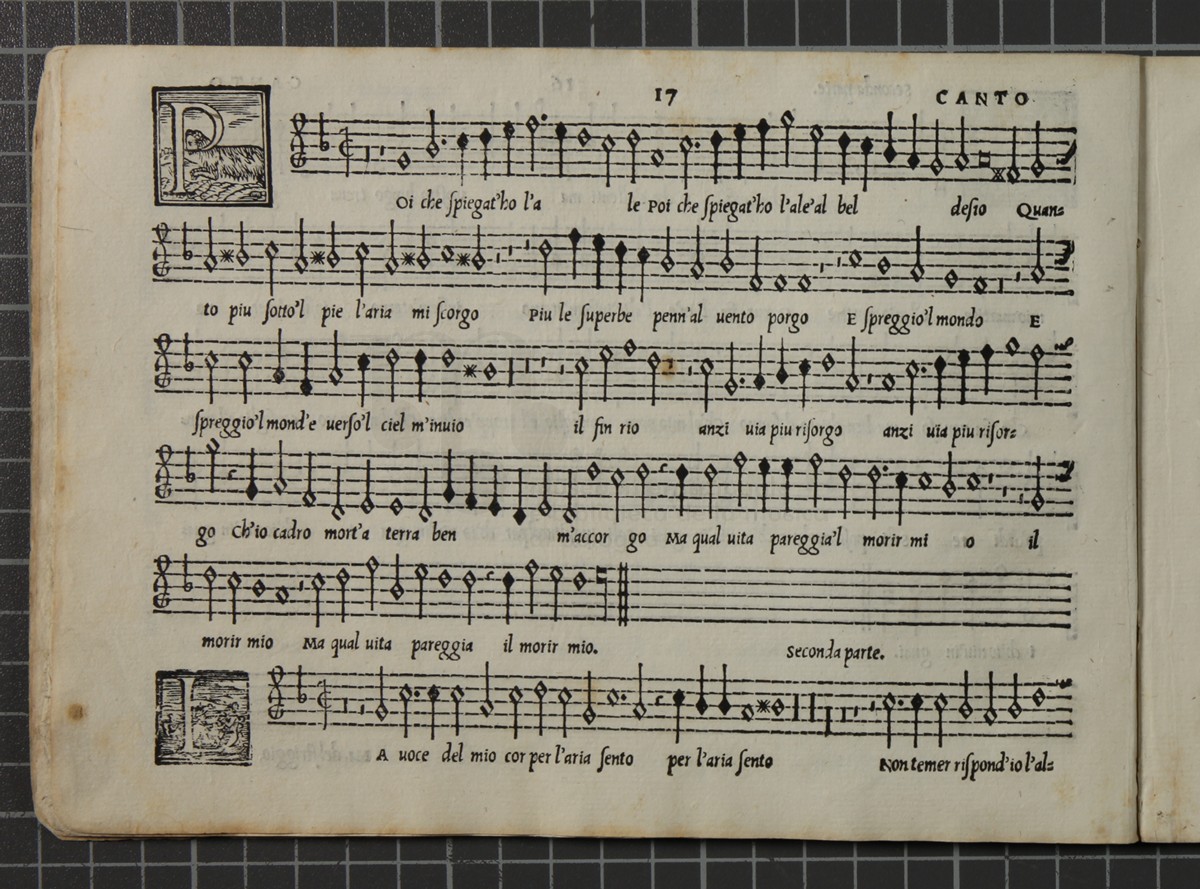 17 CANTO
POi che spiegat'ho l'a le Poi che spiegat'ho l'ale'al bel desio Quan=
to piu sotto'l pie l'aria mi scorgo Piu le superbe penn'al uento porgo E spreggio'l mondo E
spreggio'l mond'e uerso'l ciel m'inuio il fin rio anzi uia piu risorgo anzi uia piu risor=
go Ch'io cadro mort'a terra ben m'accor go Ma qual uita pareggia'l morir mi o il
morir mio Ma qual uita pareggia il morir mio. Seconda parte.
LA uoce del mio cor per l'aria sento per l'aria sento Non temer rispond'io l'al=